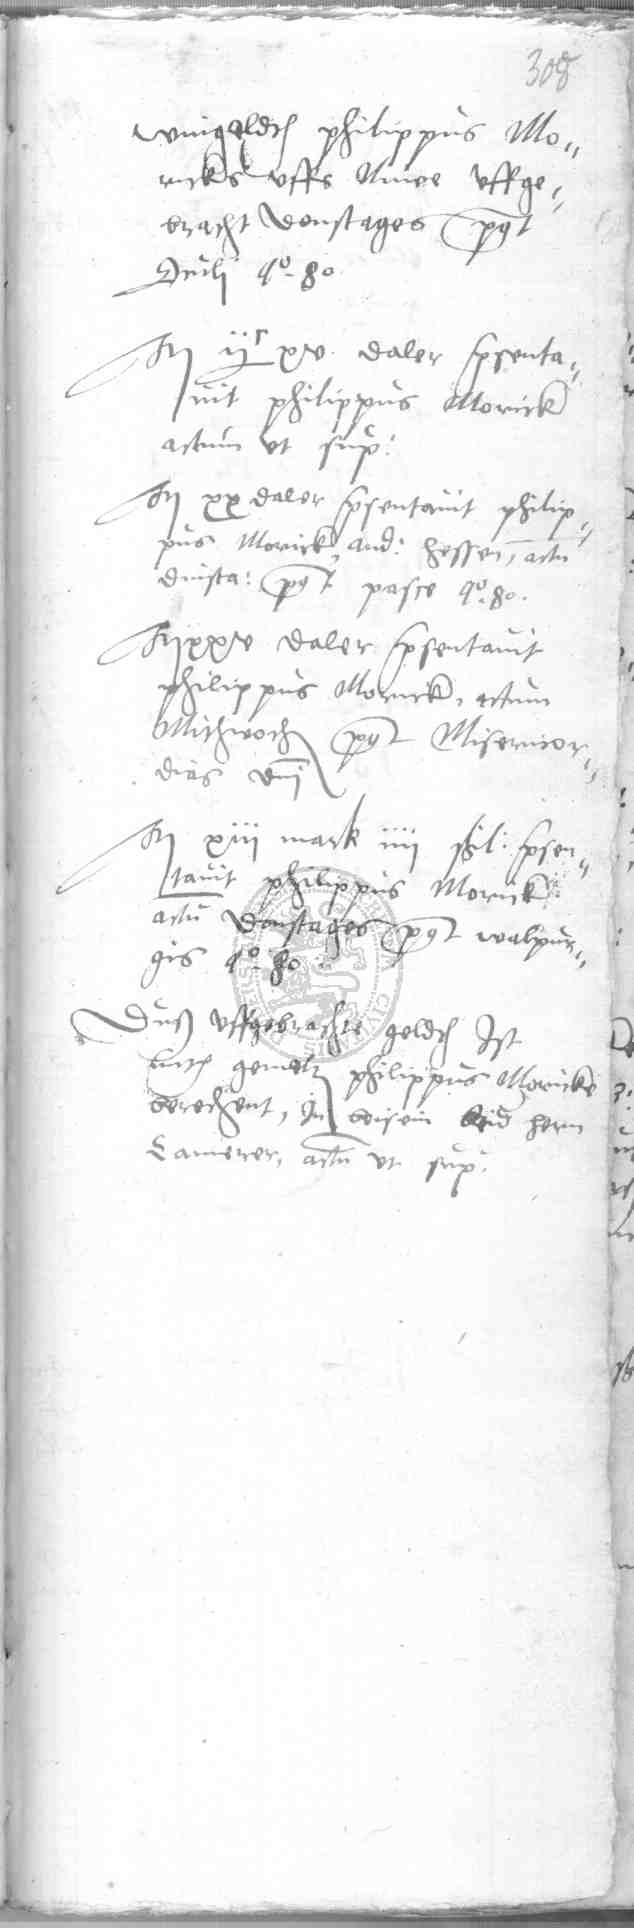 308
wingeldes philippus Mo-
ricks uffs Niwe uffge-
bracht Donstages post
Oculi ao. 80
Item ijc xv daler presenta-
uit philippus Morick
actum ut sup:
Item xx daler presentauit philip-
pus Morick, And: hessen, actu
dinsta: post pasce ao. 80.
Item xxv daler presentauit
philippus Morick, actum
Mithwoch post Misericor-
dias dni
Item xiii mark iiii ßl: presen-
tauit philippus Morick
actu Donstages post walpur-
gis ao. 80
Duß uffgebrachte geldes Ist
mit gemelt philippus Moricke
berechent, In beisein beid hern
Camerer, actu ut sup: